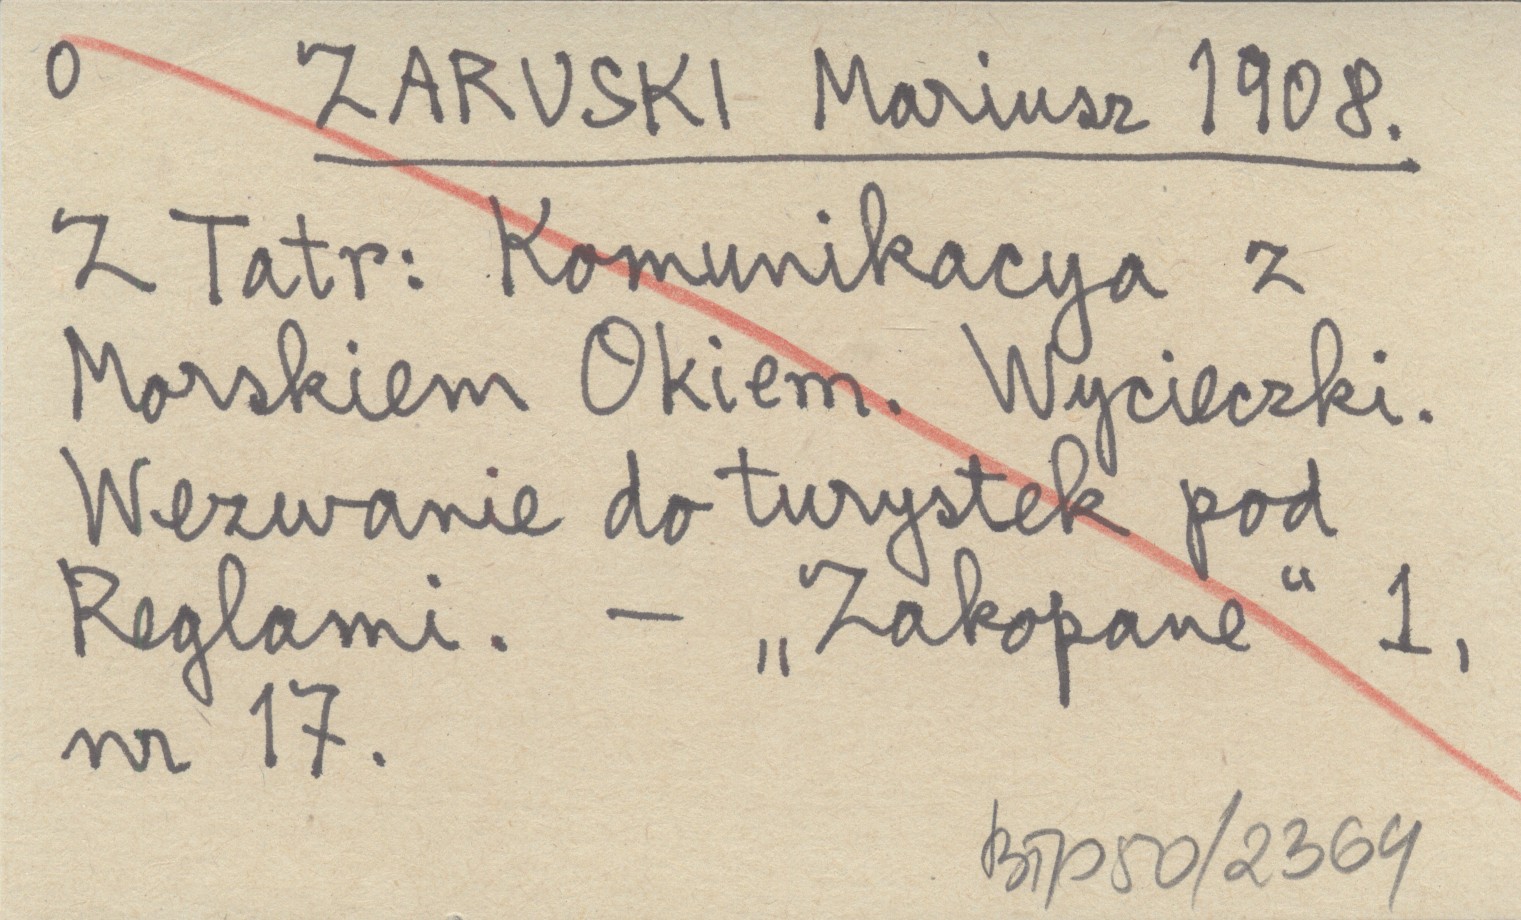 O ZARUSKI Mariusz 1908.
Z Tatr: Komunikacya z
Morskiem Okiem. Wycieczki.
Wezwanie do turystek pod
Reglami. — „Zakopane“ 1,
nr 17.
BTP50/2369